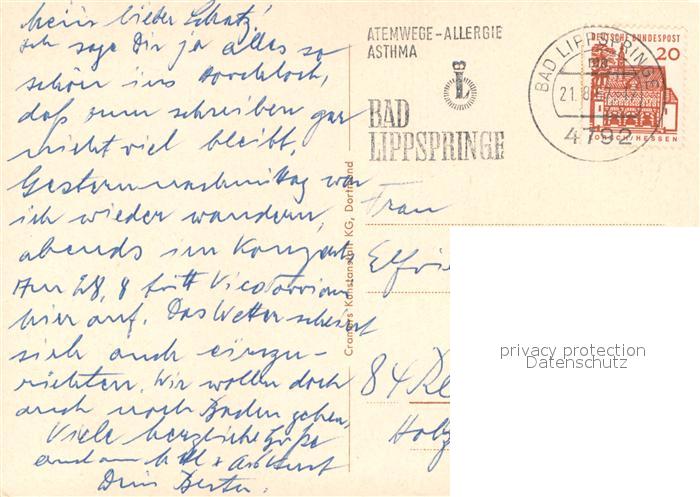 Mein lieber Schatz!
Ich sage Dir ja alles so
schön ins
daß zum schreiben gar
nicht viel bleibt.
Gesternnachmittag war
ich wieder wandern,
abends im Konzert.
Am 28, 8 tritt
hier auf. Das Wetter scheint
sich auch einzu-
richten. Wir wollen doch
auch nach Baden gehen.
Viele herzliche Grüße
Dein
ATEMWEGE-ALLERGIE
ASTHMA
L
BAD
LIPPSPRINGE
BAD LIPPSPRINGE
21.8
4792
DEUTSCHE BUNDESPOST
20
LORSCH/HESSEN
Cramers Kunstanstalt KG, Dortmund
Frau
Elfrie
84 Re
Holz
privacy protection
Datenschutz